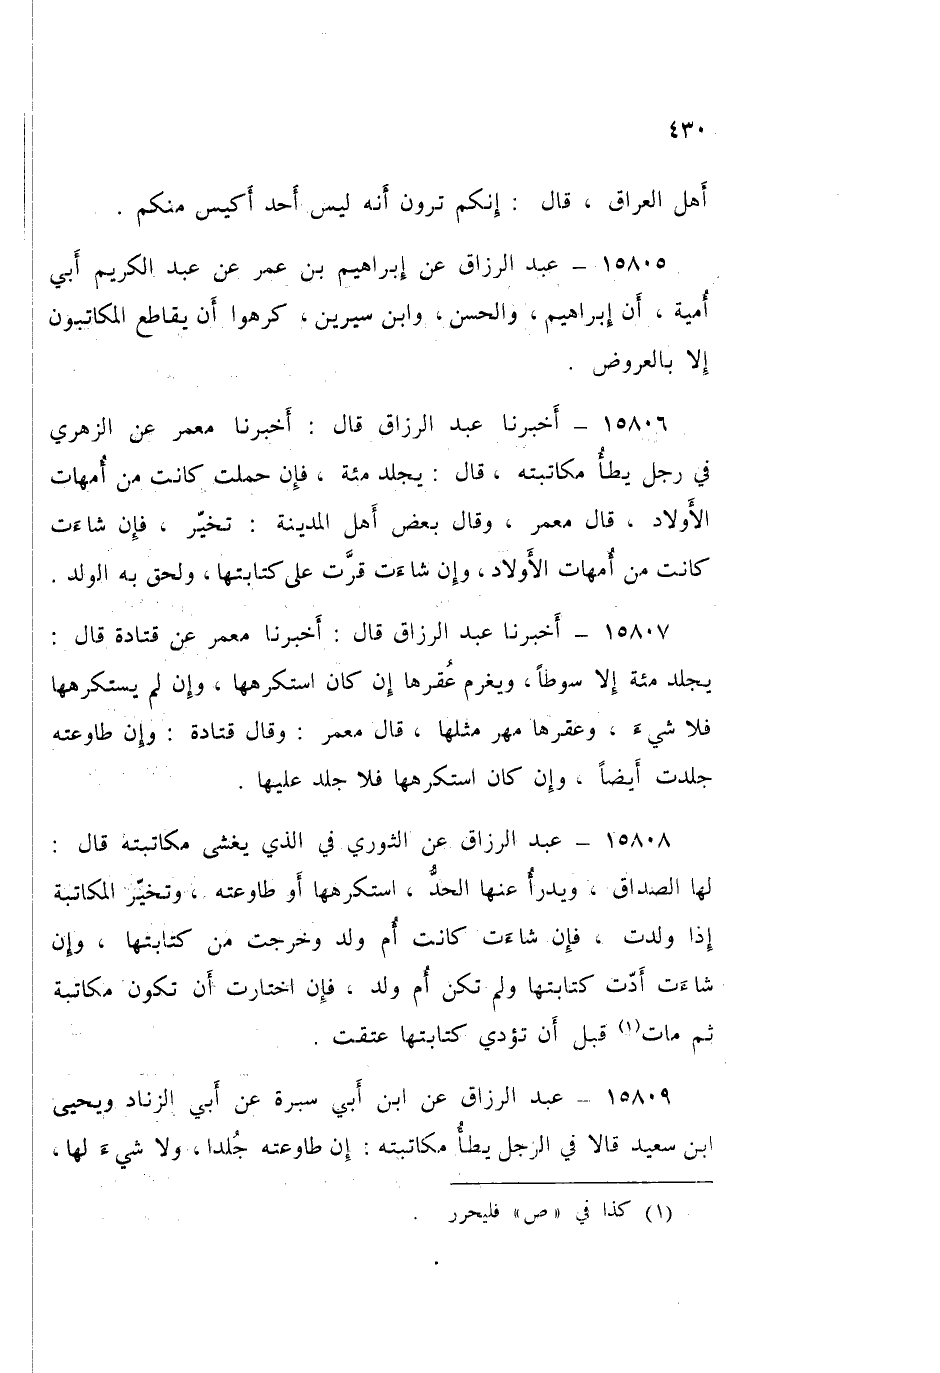 ٤٣٠
أَهل العراق ، قال : إِنكم ترون أَنه ليس أَحد أَكيس منكم .
١٥٨٠٥ – عبد الرزاق عن إِبراهيم بن عمر عن عبد الكريم أَبي
أُمية ، أَن إِبراهيم ، والحسن ، وابن سيرين ، كرهوا أَن يقاطع المكاتبون
إِلا بالعروض .
١٥٨٠٦ – أَخبرنا عبد الرزاق قال : أَخبرنا معمر عن الزهري
في رجل يطأُ مكاتبته ، قال : يجلد مئة ، فإِن حملت كانت من أُمهات
الأَولاد ، قال معمر ، وقال بعض أَهل المدينة : تخيّر ، فإِن شاءَت
كانت من أُمهات الأَولاد ، وإِن شاءَت قرَّت على كتابتها ، ولحق به الولد .
١٥٨٠٧ – أَخبرنا عبد الرزاق قال : أَخبرنا معمر عن قتادة قال :
يجلد مئة إِلا سوطاً ، ويغرم عُقرها إِن كان استكرهها ، وإِن لم يستكرهها
فلا شيءَ ، وعقرها مهر مثلها ، قال معمر : وقال قتادة : وإِن طاوعته
جلدت أَيضاً ، وإِن كان استكرهها فلا جلد عليها .
١٥٨٠٨ – عبد الرزاق عن الثوري في الذي يغشى مكاتبته قال :
لها الصداق ، ويدرأُ عنها الحدُّ ، استكرهها أَو طاوعته ، وتخيّر المكاتبة
إِذا ولدت ، فإِن شاءَت كانت أُم ولد وخرجت من كتابتها ، وإِن
شاءَت أَدّت كتابتها ولم تكن أُم ولد ، فإِن اختارت أَن تكون مكاتبة
ثم مات(١) قبل أَن تؤدي كتابتها عتقت .
١٥٨٠٩ – عبد الرزاق عن ابن أَبي سبرة عن أَبي الزناد ويحيى
ابن سعيد قالا في الرجل يطأُ مكاتبته : إِن طاوعته جُلدا ، ولا شيءَ لها ،
(١) كذا في « ص » فليحرر .